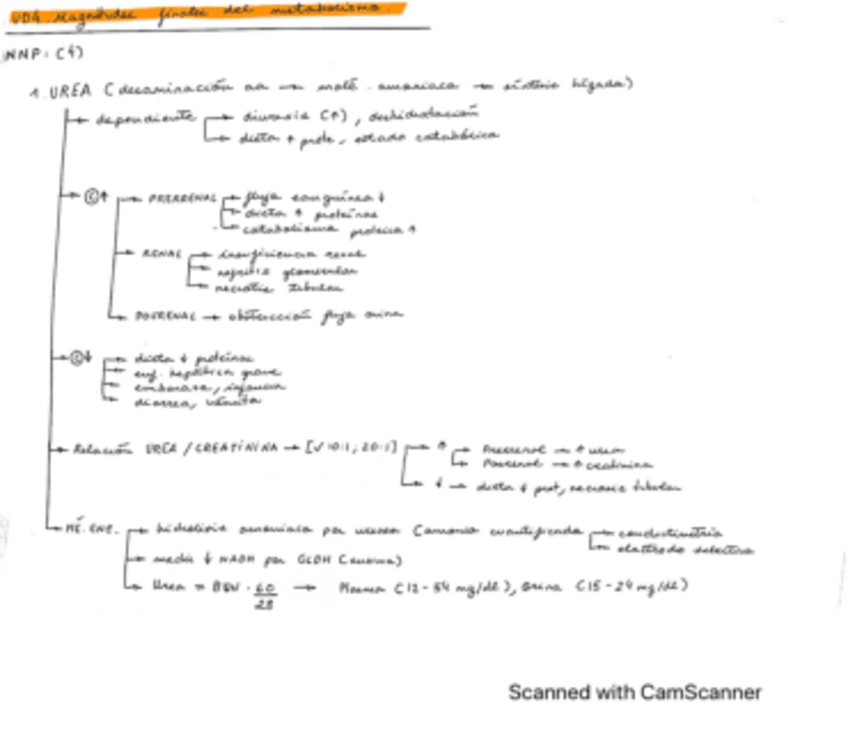 UD4. Magnitudes finales del metabolismo.
NNP: (4)
1. UREA (desaminación aa → molé. amoniaco → síntesis hígado)
dependiente → diuresis (↑), deshidratación
→ dieta + prote, estado catabólico
Ⓒ↑ → PRERRENAL → flujo sanguíneo ↓
→ dieta ↑ proteínas
→ catabolismo proteico ↑
→ RENAL → insuficiencia renal
→ nefritis glomerular
→ necrosis tubular
→ POSRENAL → obstrucción flujo orina
Ⓒ↓ → dieta ↓ proteínas
→ enf. hepática grave
→ embarazo, infancia
→ diarrea, vómito
→ Relación UREA / CREATININA → [√ 10:1; 20:1] → ↑ → Prerrenal → ↑ urea
→ Posrenal → ↑ creatinina
→ ↓ → dieta ↓ prot, necrosis tubular
→ MÉ. ENZ. → hidrólisis amoniaco por ureasa (amonio cuantificado → conductimetría
→ electrodo selectivo
→ medir ↓ NADH por GLDH (enzima)
→ Urea = BUN · 60/28 → Plasma (12-54 mg/dl), orina (15-24 mg/dl)
Scanned with CamScanner